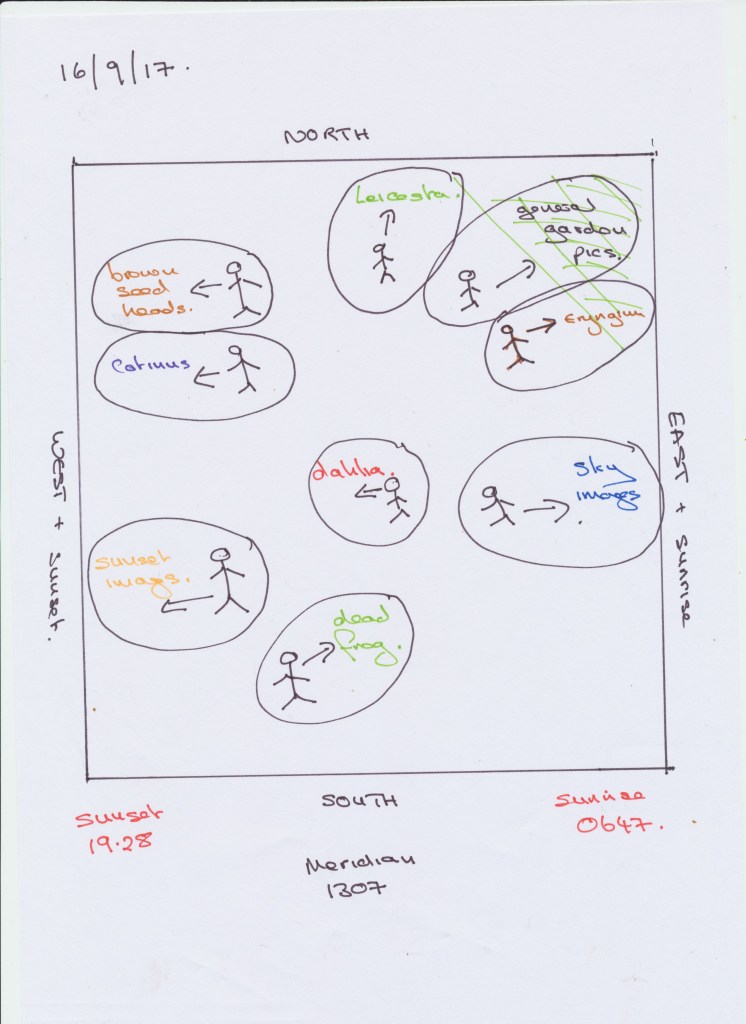 16/9/17.
NORTH
Leicosta.
general
garden
pics.
brown
seed
heads.
Eryngium
Cotinus
WEST + Sunset.
EAST + Sunrise
dahlia.
Sky
images
.
sunset
images.
dead
frog.
SOUTH
Sunset
19.28
Sunrise
0647.
Meridian
1307